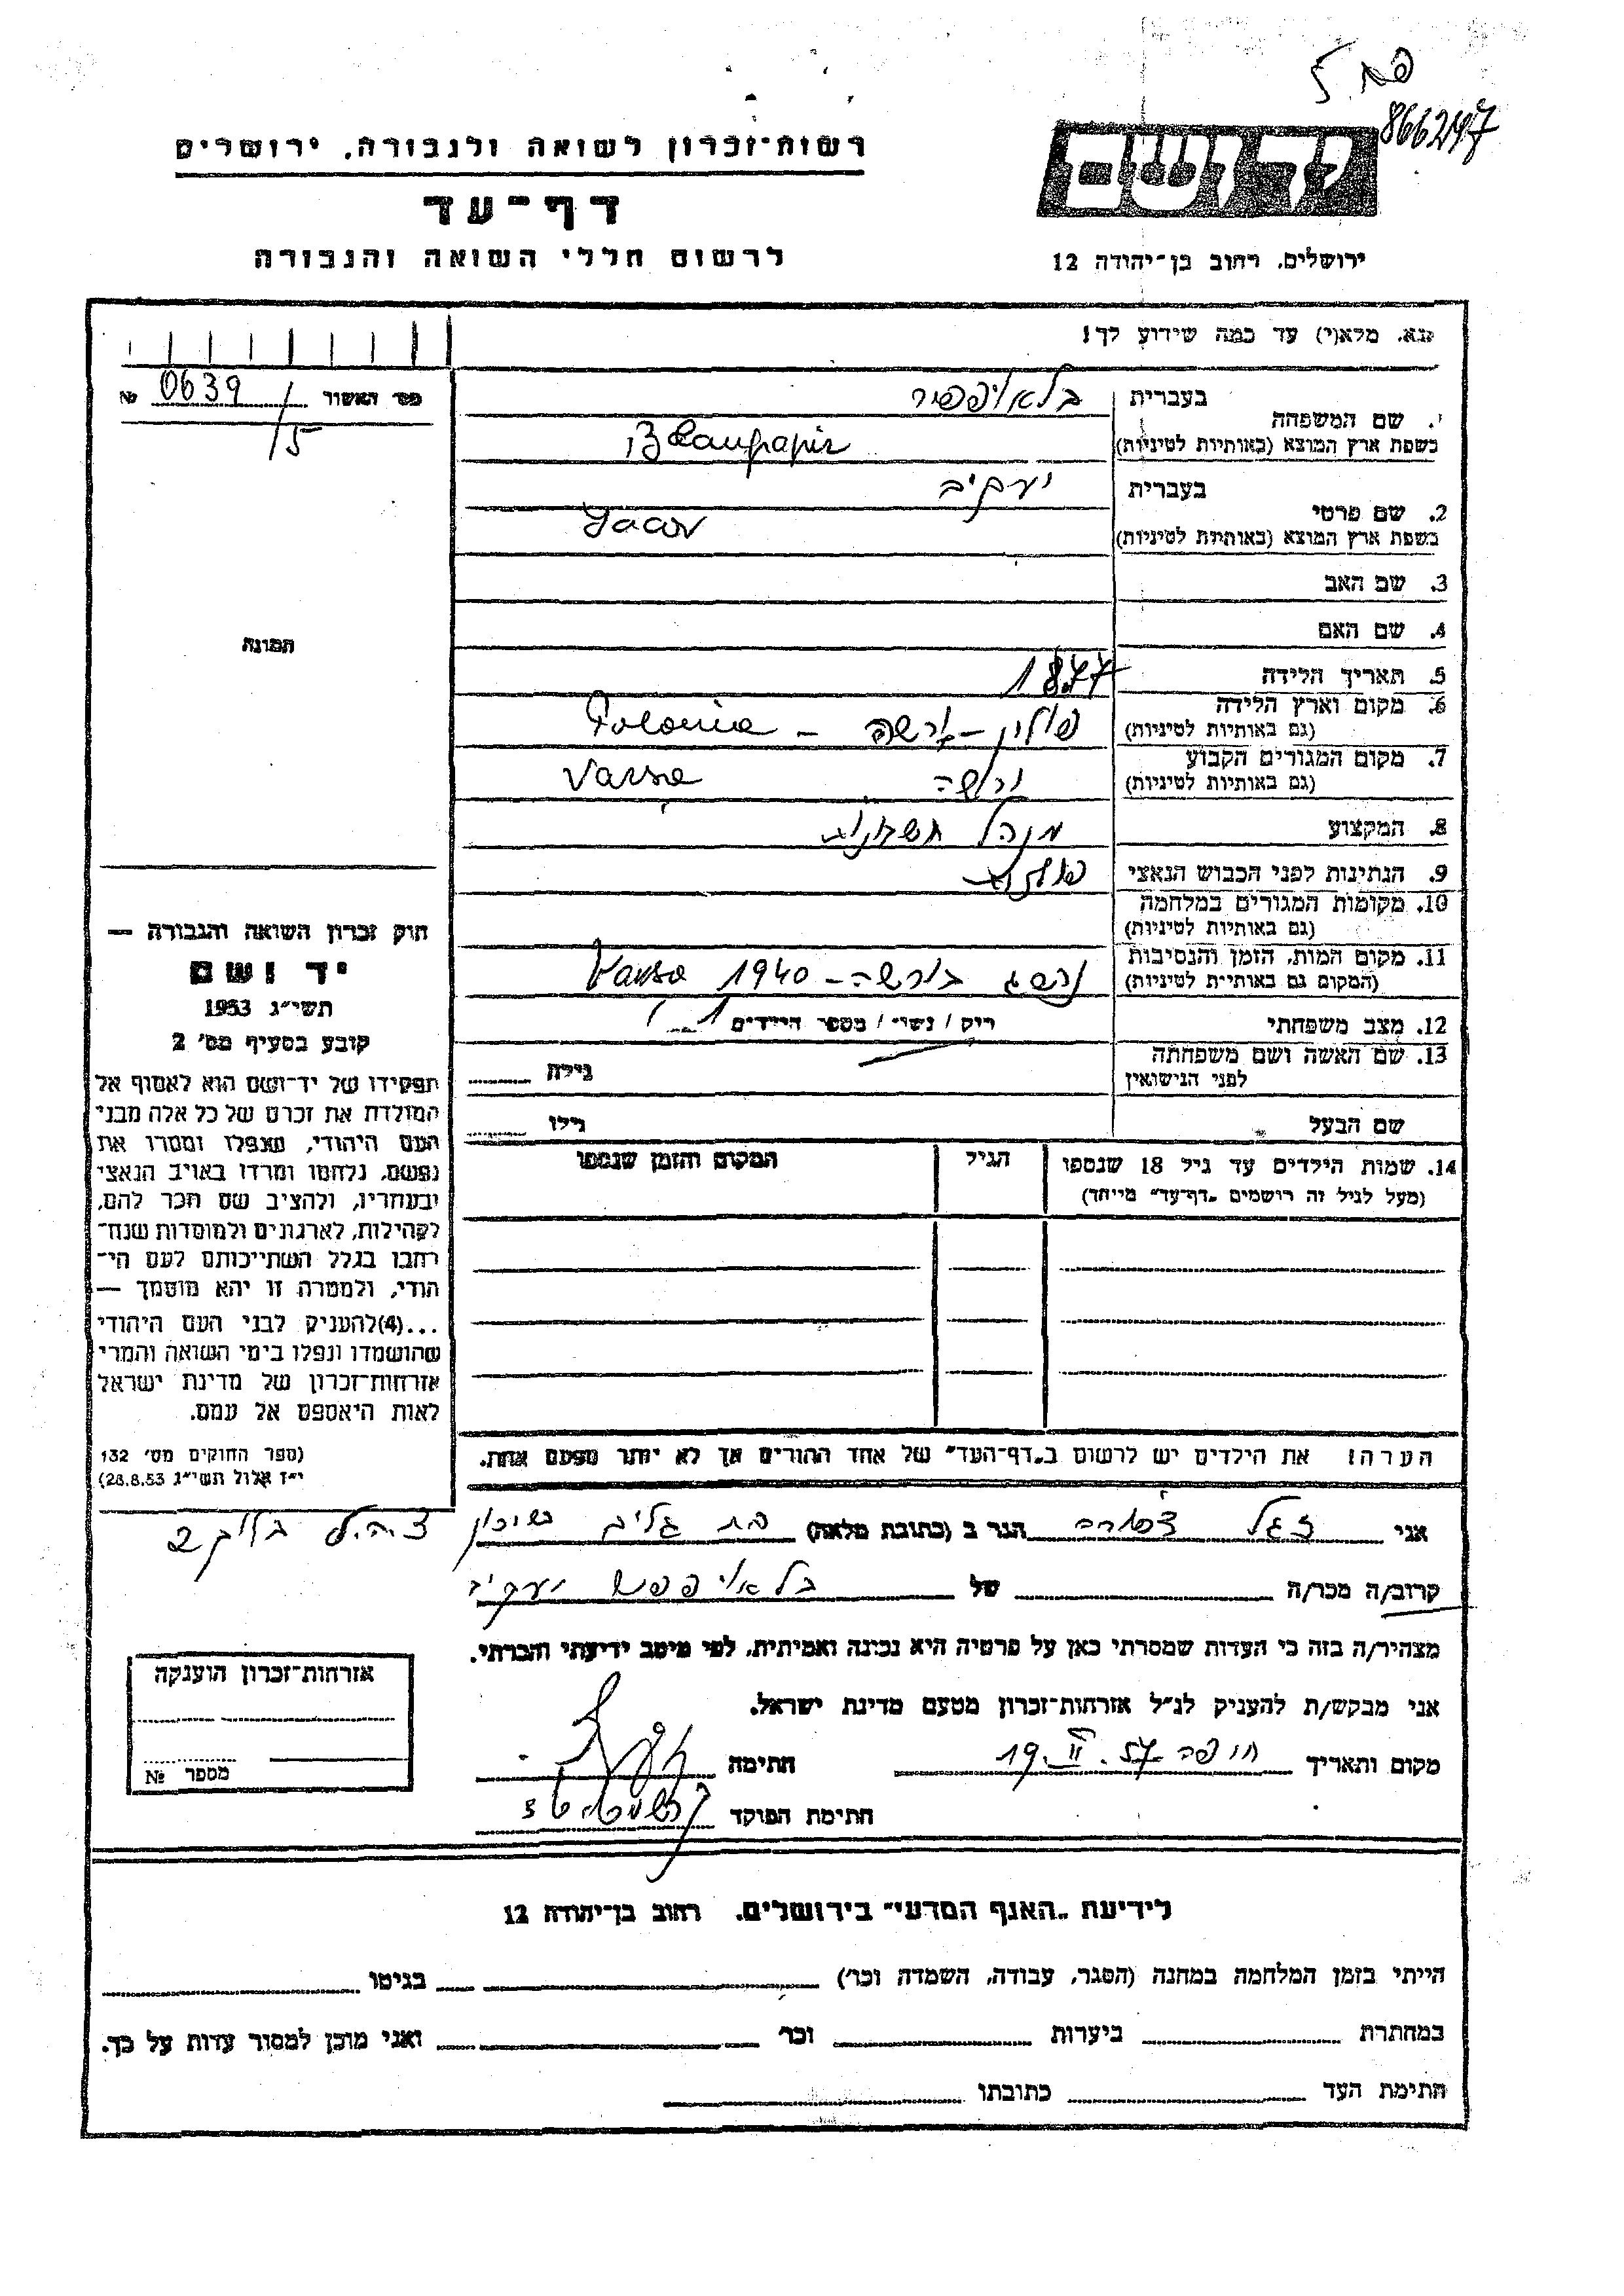 866247
רשות־זכרון לשואה ולגבורה, ירושלים
דף־עד
לרשום חללי השואה והגבורה
יד ושם
ירושלים, רחוב בן־יהודה 12
נא, מלא(י) עד כמה שידוע לך!
מס' האשור 0639 №
/5
1. שם המשפחה בעברית בלאופפיר
בשפת ארץ המוצא (באותיות לטיניות) Blaupapir
2. שם פרטי בעברית יעקב
בשפת ארץ המוצא (באותיות לטיניות)
3. שם האב
4. שם האם
תמונה
5. תאריך הלידה 1877
6. מקום וארץ הלידה (גם באותיות לטיניות) פולין – ורשה – Polonia
7. מקום המגורים הקבוע (גם באותיות לטיניות) ורשה Varsa
8. המקצוע מנהל חשבונות
9. הנתינות לפני הכבוש הנאצי פולנית
10. מקומות המגורים במלחמה (גם באותיות לטיניות)
11. מקום המות, הזמן והנסיבות (המקום גם באותיות לטיניות) נהרג בורשה – Varsa 1940
12. מצב משפחתי רווק / נשוי / מספר הילדים 1
13. שם האשה ושם משפחתה לפני הנישואין גילה
שם הבעל גילו
14. שמות הילדים עד גיל 18 שנספו הגיל המקום והזמן שנספו
(מעל לגיל זה רושמים „דף־עד" מיוחד)
הערה: את הילדים יש לרשום ב„דף־העד" של אחד ההורים אך לא יותר מפעם אחת.
חוק זכרון השואה והגבורה —
יד ושם
תשי"ג 1953
קובע בסעיף מס' 2
תפקידו של יד־ושם הוא לאסוף אל
המולדת את זכרם של כל אלה מבני
העם היהודי, שנפלו ומסרו את
נפשם, נלחמו ומרדו באויב הנאצי
ובעוזריו, ולהציב שם וזכר להם,
לקהילות, לארגונים ולמוסדות שנח־
רבו בגלל השתייכותם לעם הי־
הודי, ולמטרה זו יהא מוסמך —
...(4)להעניק לבני העם היהודי
שהושמדו ונפלו בימי השואה והמרי
אזרחות־זכרון של מדינת ישראל
לאות היאספם אל עמם.
(ספר החוקים מס' 132
י"ז אלול תשי"ג 28.8.53)
אני צפורה הגר ב (כתובת מלאה) בת גלים שיכון צ.ה.ל בלוק 2
קרוב/ה מכר/ה של בלאופפיר יעקב
מצהיר/ה בזה כי העדות שמסרתי כאן על פרטיה היא נכונה ואמיתית, לפי מיטב ידיעתי והכרתי.
אני מבקש/ת להעניק לנ"ל אזרחות־זכרון מטעם מדינת ישראל.
מקום ותאריך חיפה 19.II.57 חתימה
חתימת הפוקד
אזרחות־זכרון הוענקה
מספר №
לידיעת „האגף המדעי" בירושלים, רחוב בן־יהודה 12
הייתי בזמן המלחמה במחנה (הסגר, עבודה, השמדה וכו') בגיטו
במחתרת ביערות וכו' ואני מוכן למסור עדות על כך.
חתימת העד כתובתו